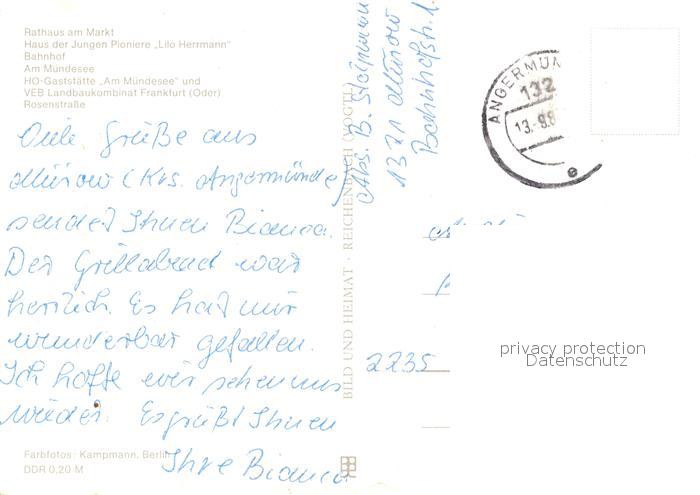 Rathaus am Markt
Haus der Jungen Pioniere „Lilo Herrmann"
Bahnhof
Am Mündesee
HO-Gaststätte „Am Mündesee" und
VEB Landbaukombinat Frankfurt (Oder)
Rosenstraße
Viele Grüße aus
Mürow (Krs. Angermünde)
sendet Ihnen Bianca.
Der Grillabend war
herrlich. Es hat mir
wunderbar gefallen.
Ich hoffe wir sehen uns
wieder. Es grüßt Ihnen
Ihre Bianca
Farbfotos: Kampmann, Berlin
DDR 0,20 M
BILD UND HEIMAT · REICHENBACH (VOGTL)
Abs. B.
1321 Mürow
Bahnhofstr. 1
ANGERMÜN
132
13.-9.8
2235
privacy protection
Datenschutz